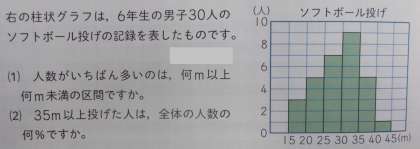 右の柱状グラフは，6年生の男子30人の
ソフトボール投げの記録を表したものです。
(1) 人数がいちばん多いのは，何m以上
何m未満の区間ですか。
(2) 35m以上投げた人は，全体の人数の
何%ですか。
(人) ソフトボール投げ
10
8
6
4
2
0
15 20 25 30 35 40 45(m)